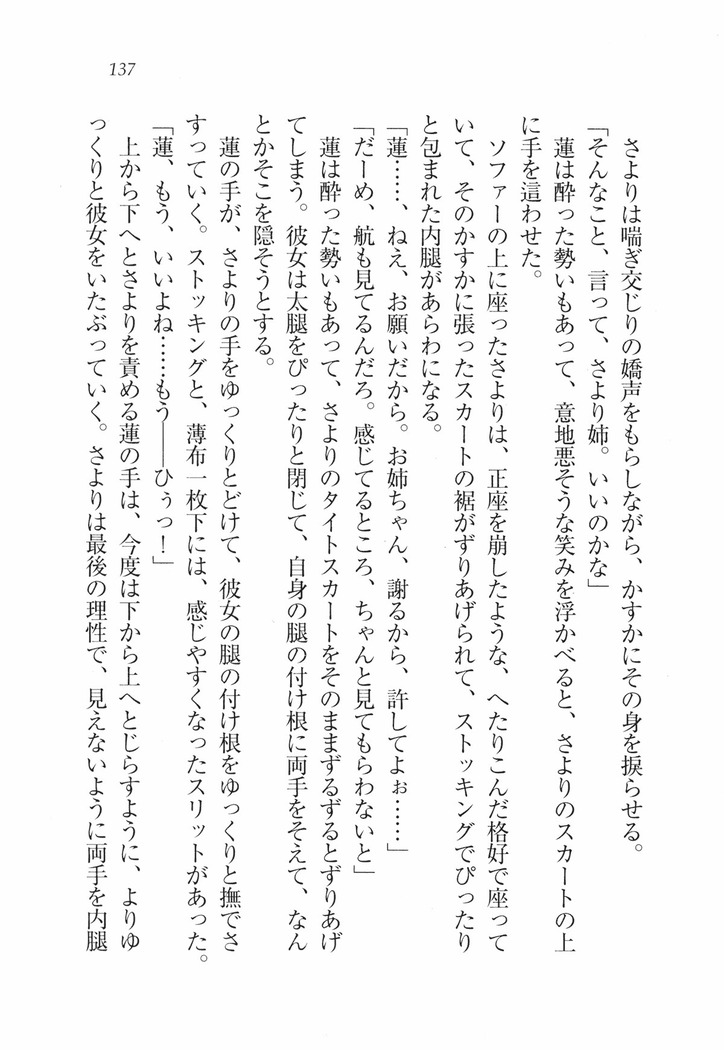 137
さよりは喘ぎ交じりの嬌声をもらしながら、かすかにその身を捩らせる。
「そんなこと、言って、さより姉。いいのかな」
蓮は酔った勢いもあって、意地悪そうな笑みを浮かべると、さよりのスカートの上
に手を這わせた。
ソファーの上に座ったさよりは、正座を崩したような、へたりこんだ格好で座って
いて、そのかすかに張ったスカートの裾がずりあげられて、ストッキングでぴったり
と包まれた内腿があらわになる。
「蓮……、ねえ、お願いだから。お姉ちゃん、謝るから、許してよぉ……」
「だーめ、航も見てるんだろ。感じてるところ、ちゃんと見てもらわないと」
蓮は酔った勢いもあって、さよりのタイトスカートをそのままずるずるとずりあげ
てしまう。彼女は太腿をぴったりと閉じて、自身の腿の付け根に両手をそえて、なん
とかそこを隠そうとする。
蓮の手が、さよりの手をゆっくりとどけて、彼女の腿の付け根をゆっくりと撫でさ
すっていく。ストッキングと、薄布一枚下には、感じやすくなったスリットがあった。
「蓮、もう、いいよね……もう――ひぅっ！」
上から下へとさよりを責める蓮の手は、今度は下から上へとじらすように、よりゆ
っくりと彼女をいたぶっていく。さよりは最後の理性で、見えないように両手を内腿